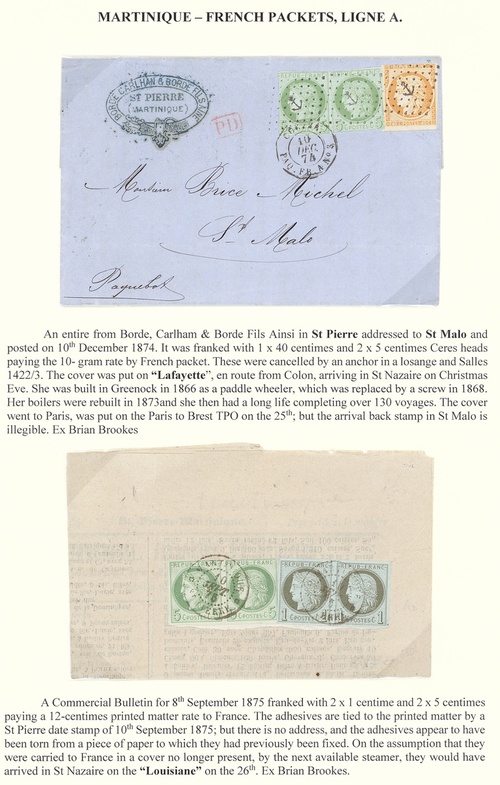 MARTINIQUE – FRENCH PACKETS, LIGNE A.
BORDE CARLHAN & BORDE FILS AINE
ST PIERRE
(MARTINIQUE)
PD
10
DEC.
74
PAQ. FR. A No 3
Monsieur Brice Michel
St Malo
Paquebot
An entire from Borde, Carlham & Borde Fils Ainsi in St Pierre addressed to St Malo and
posted on 10th December 1874. It was franked with 1 x 40 centimes and 2 x 5 centimes Ceres heads
paying the 10- gram rate by French packet. These were cancelled by an anchor in a losange and Salles
1422/3. The cover was put on “Lafayette”, en route from Colon, arriving in St Nazaire on Christmas
Eve. She was built in Greenock in 1866 as a paddle wheeler, which was replaced by a screw in 1868.
Her boilers were rebuilt in 1873and she then had a long life completing over 130 voyages. The cover
went to Paris, was put on the Paris to Brest TPO on the 25th; but the arrival back stamp in St Malo is
illegible. Ex Brian Brookes
REPUB·FRANC REPUB·FRANC
5 C POSTES C POSTES 1 C POSTES C POSTES 1
A Commercial Bulletin for 8th September 1875 franked with 2 x 1 centime and 2 x 5 centimes
paying a 12-centimes printed matter rate to France. The adhesives are tied to the printed matter by a
St Pierre date stamp of 10th September 1875; but there is no address, and the adhesives appear to have
been torn from a piece of paper to which they had previously been fixed. On the assumption that they
were carried to France in a cover no longer present, by the next available steamer, they would have
arrived in St Nazaire on the “Louisiane” on the 26th. Ex Brian Brookes.